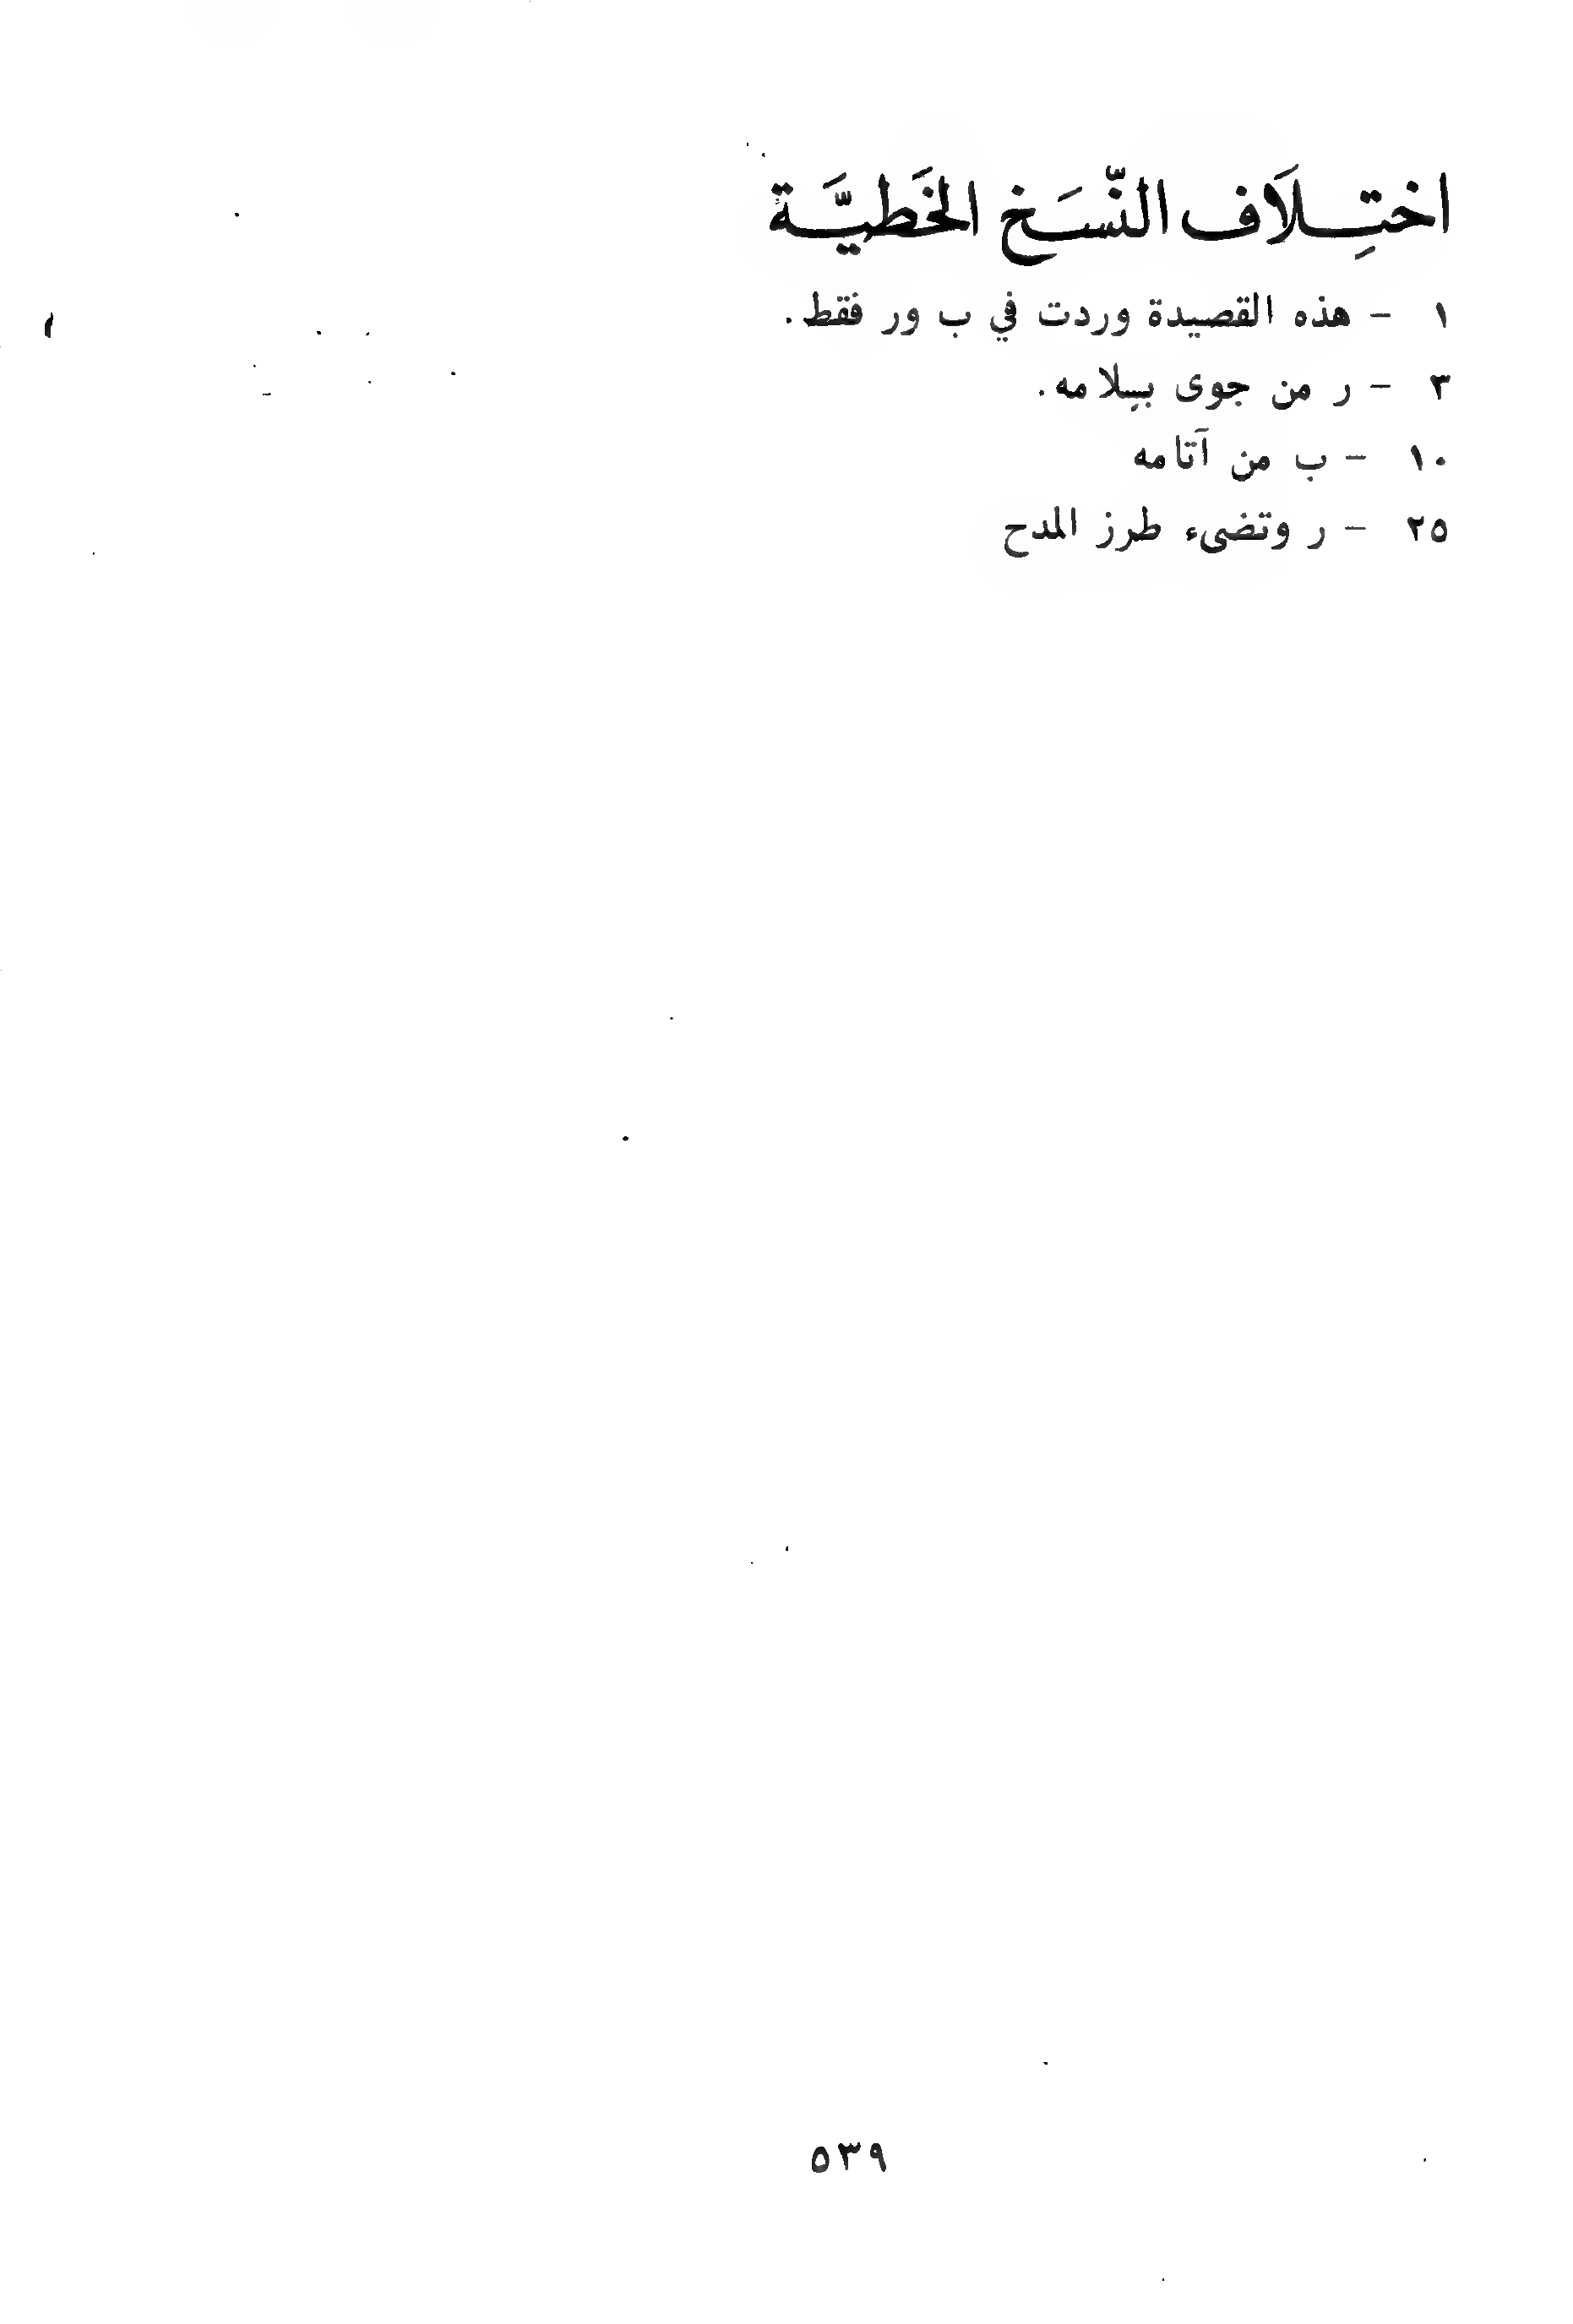 اختِلَاف النّسَخ الخَطيَّة
١ - هذه القصيدة وردت في ب ور فقط.
٣ - ر من جوى بسلامه.
١٠ - ب من آتامه
٢٥ - ر وتضىء طرز المدح
٥٣٩